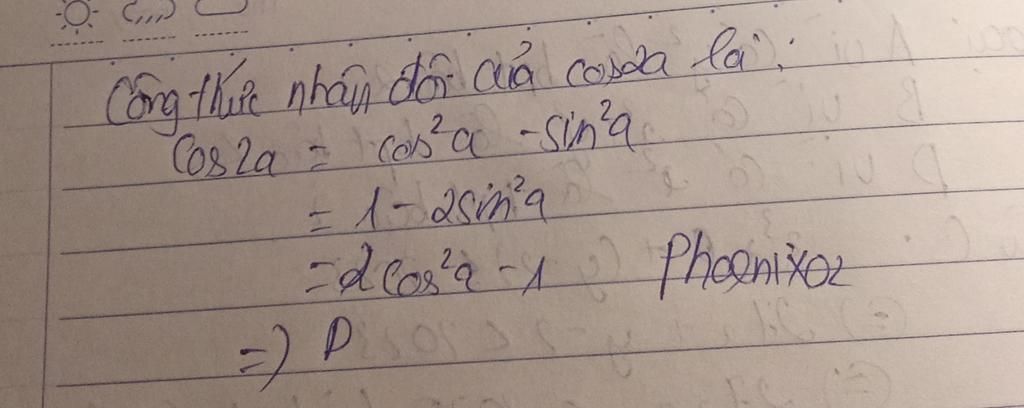 Công thức nhân đôi của cos2a là:
Cos2a = cos²a - sin²a
= 1 - 2sin²a
= 2cos²a - 1 Phoenixoz
=> D